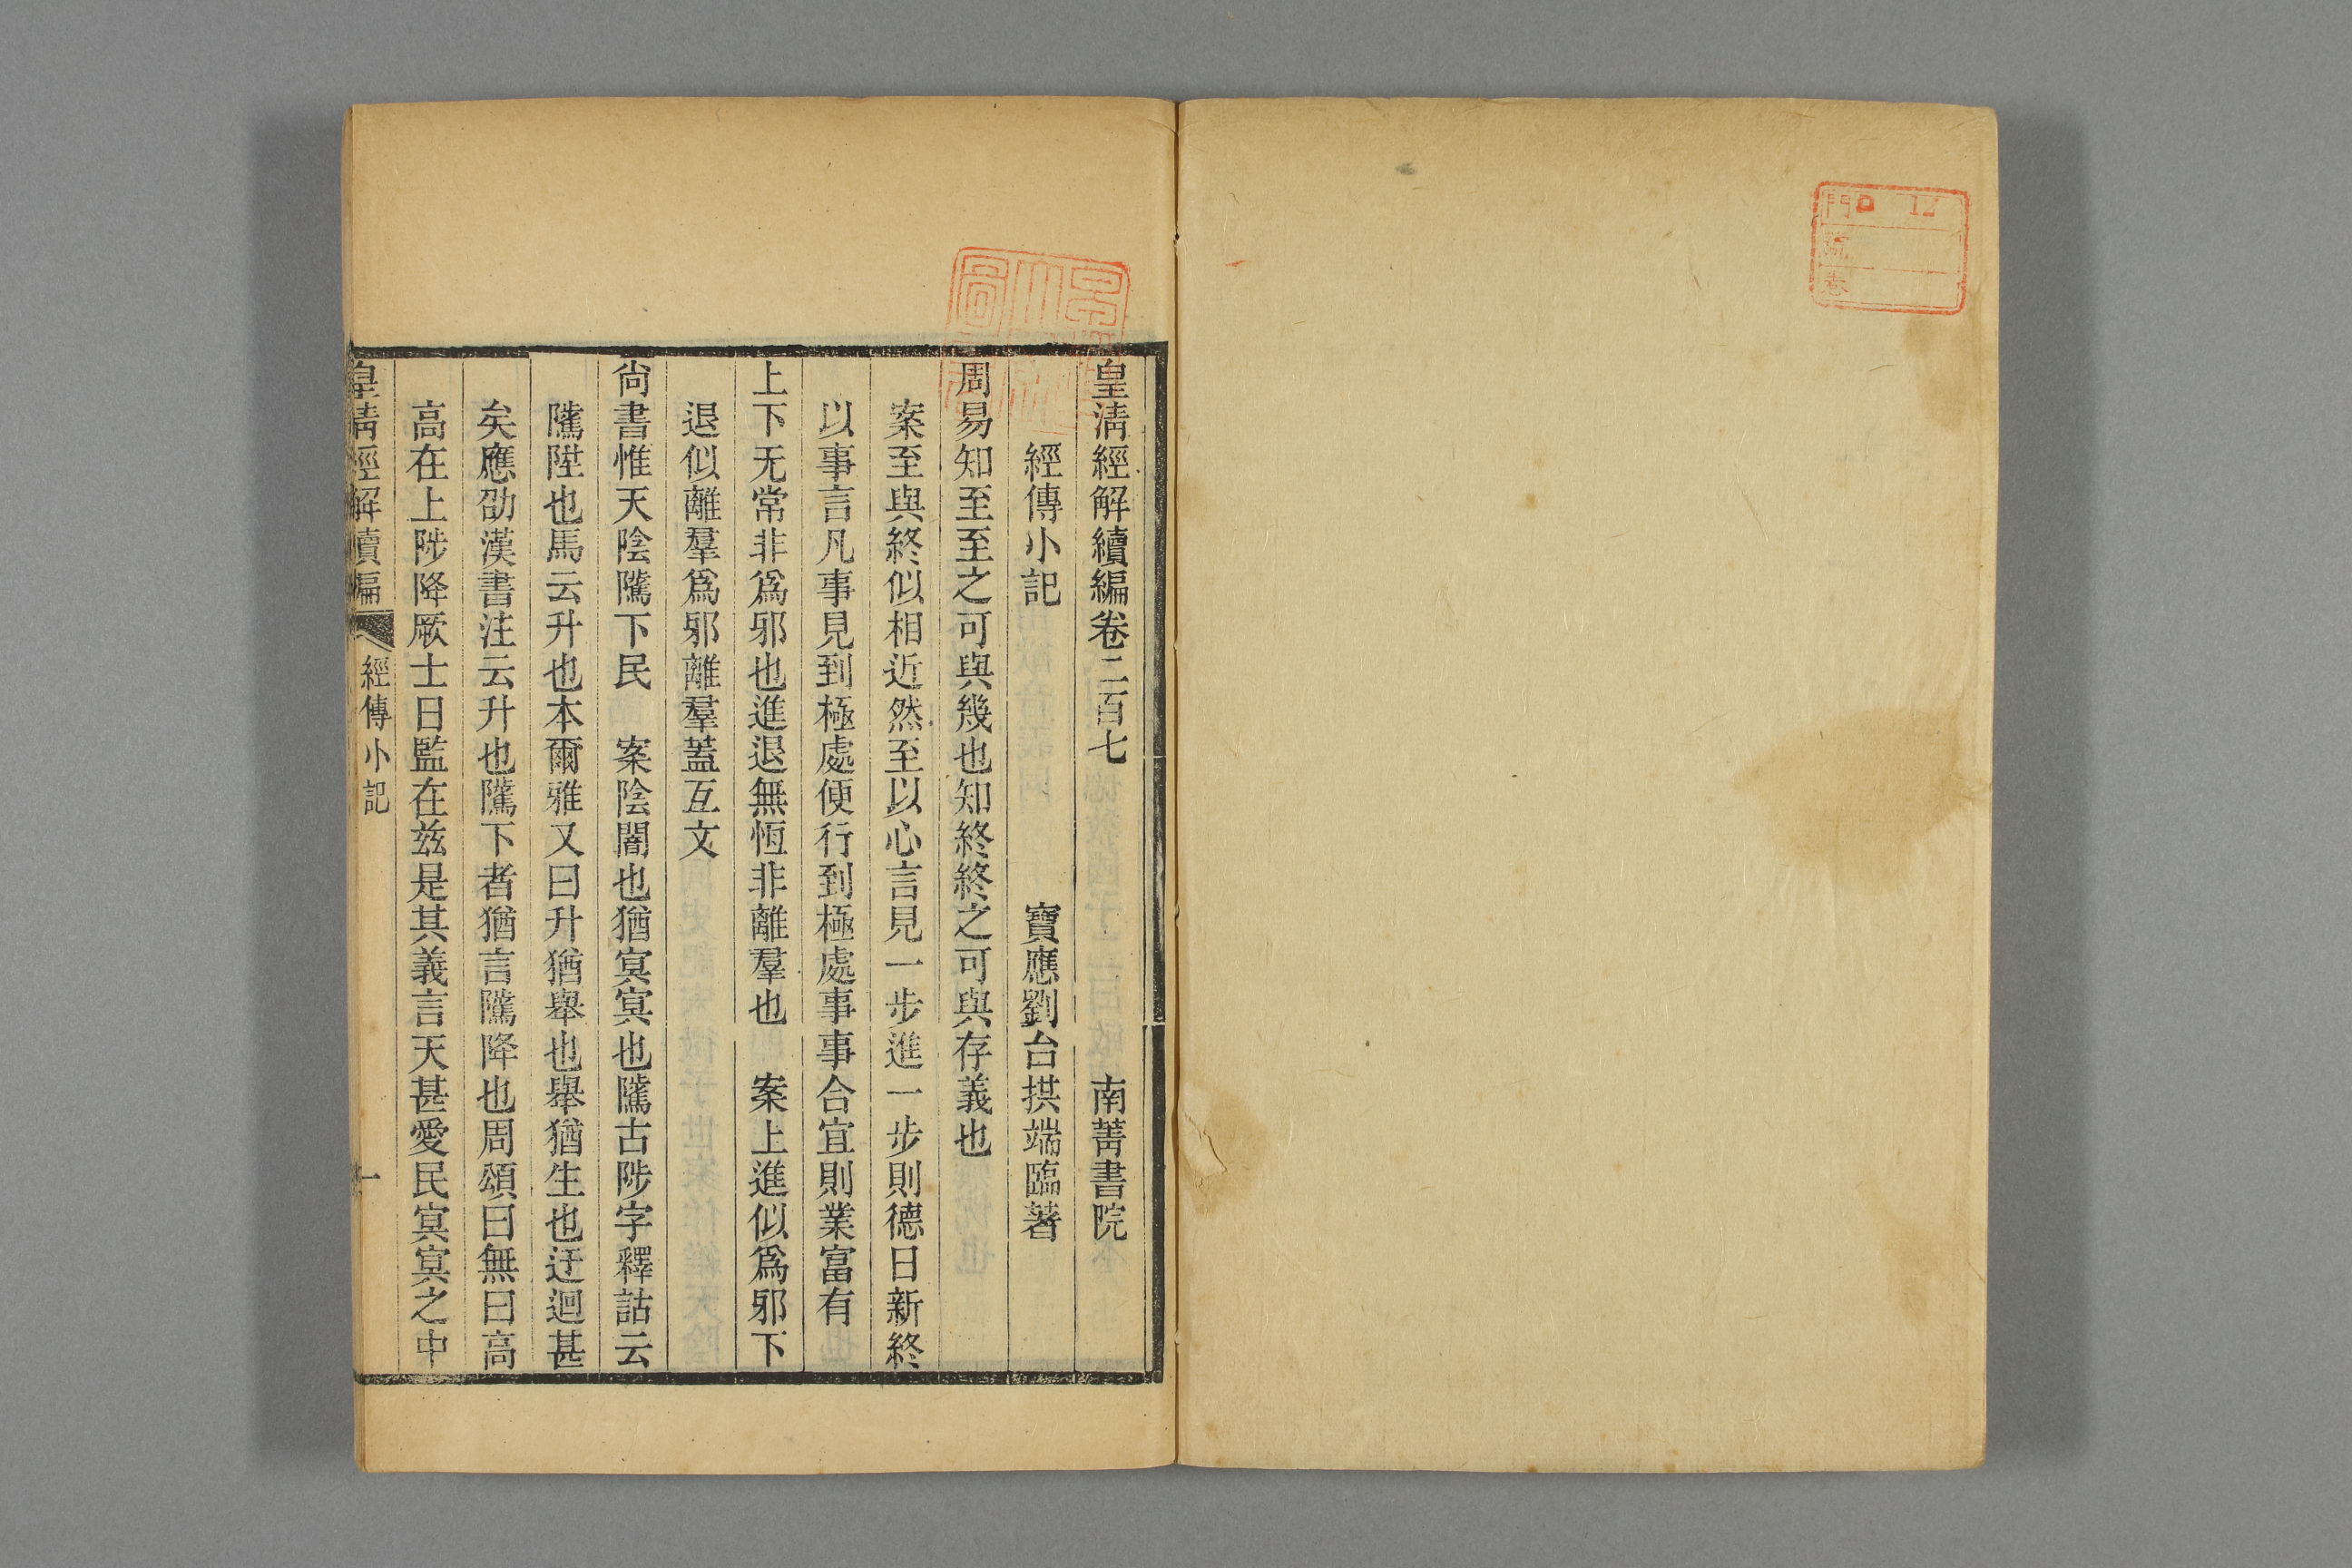 門 口 12
號
卷
皇清經解續編卷二百七 南菁書院
經傳小記 寶應劉台拱端臨著
周易知至至之可與幾也知終終之可與存義也
案至與終似相近然至以心言見一步進一步則德日新終
以事言凡事見到極處便行到極處事事合宜則業富有
上下无常非爲邪也進退無恆非離羣也 案上進似爲邪下
退似離羣爲邪離羣蓋互文
尙書惟天陰隲下民 案陰闇也猶冥冥也隲古陟字釋詁云
隲陞也馬云升也本爾雅又曰升猶舉也舉猶生也迂迴甚
矣應劭漢書注云升也隲下者猶言隲降也周頌曰無曰高
高在上陟降厥士日監在兹是其義言天甚愛民冥冥之中
皇清經解續編 經傳小記 一